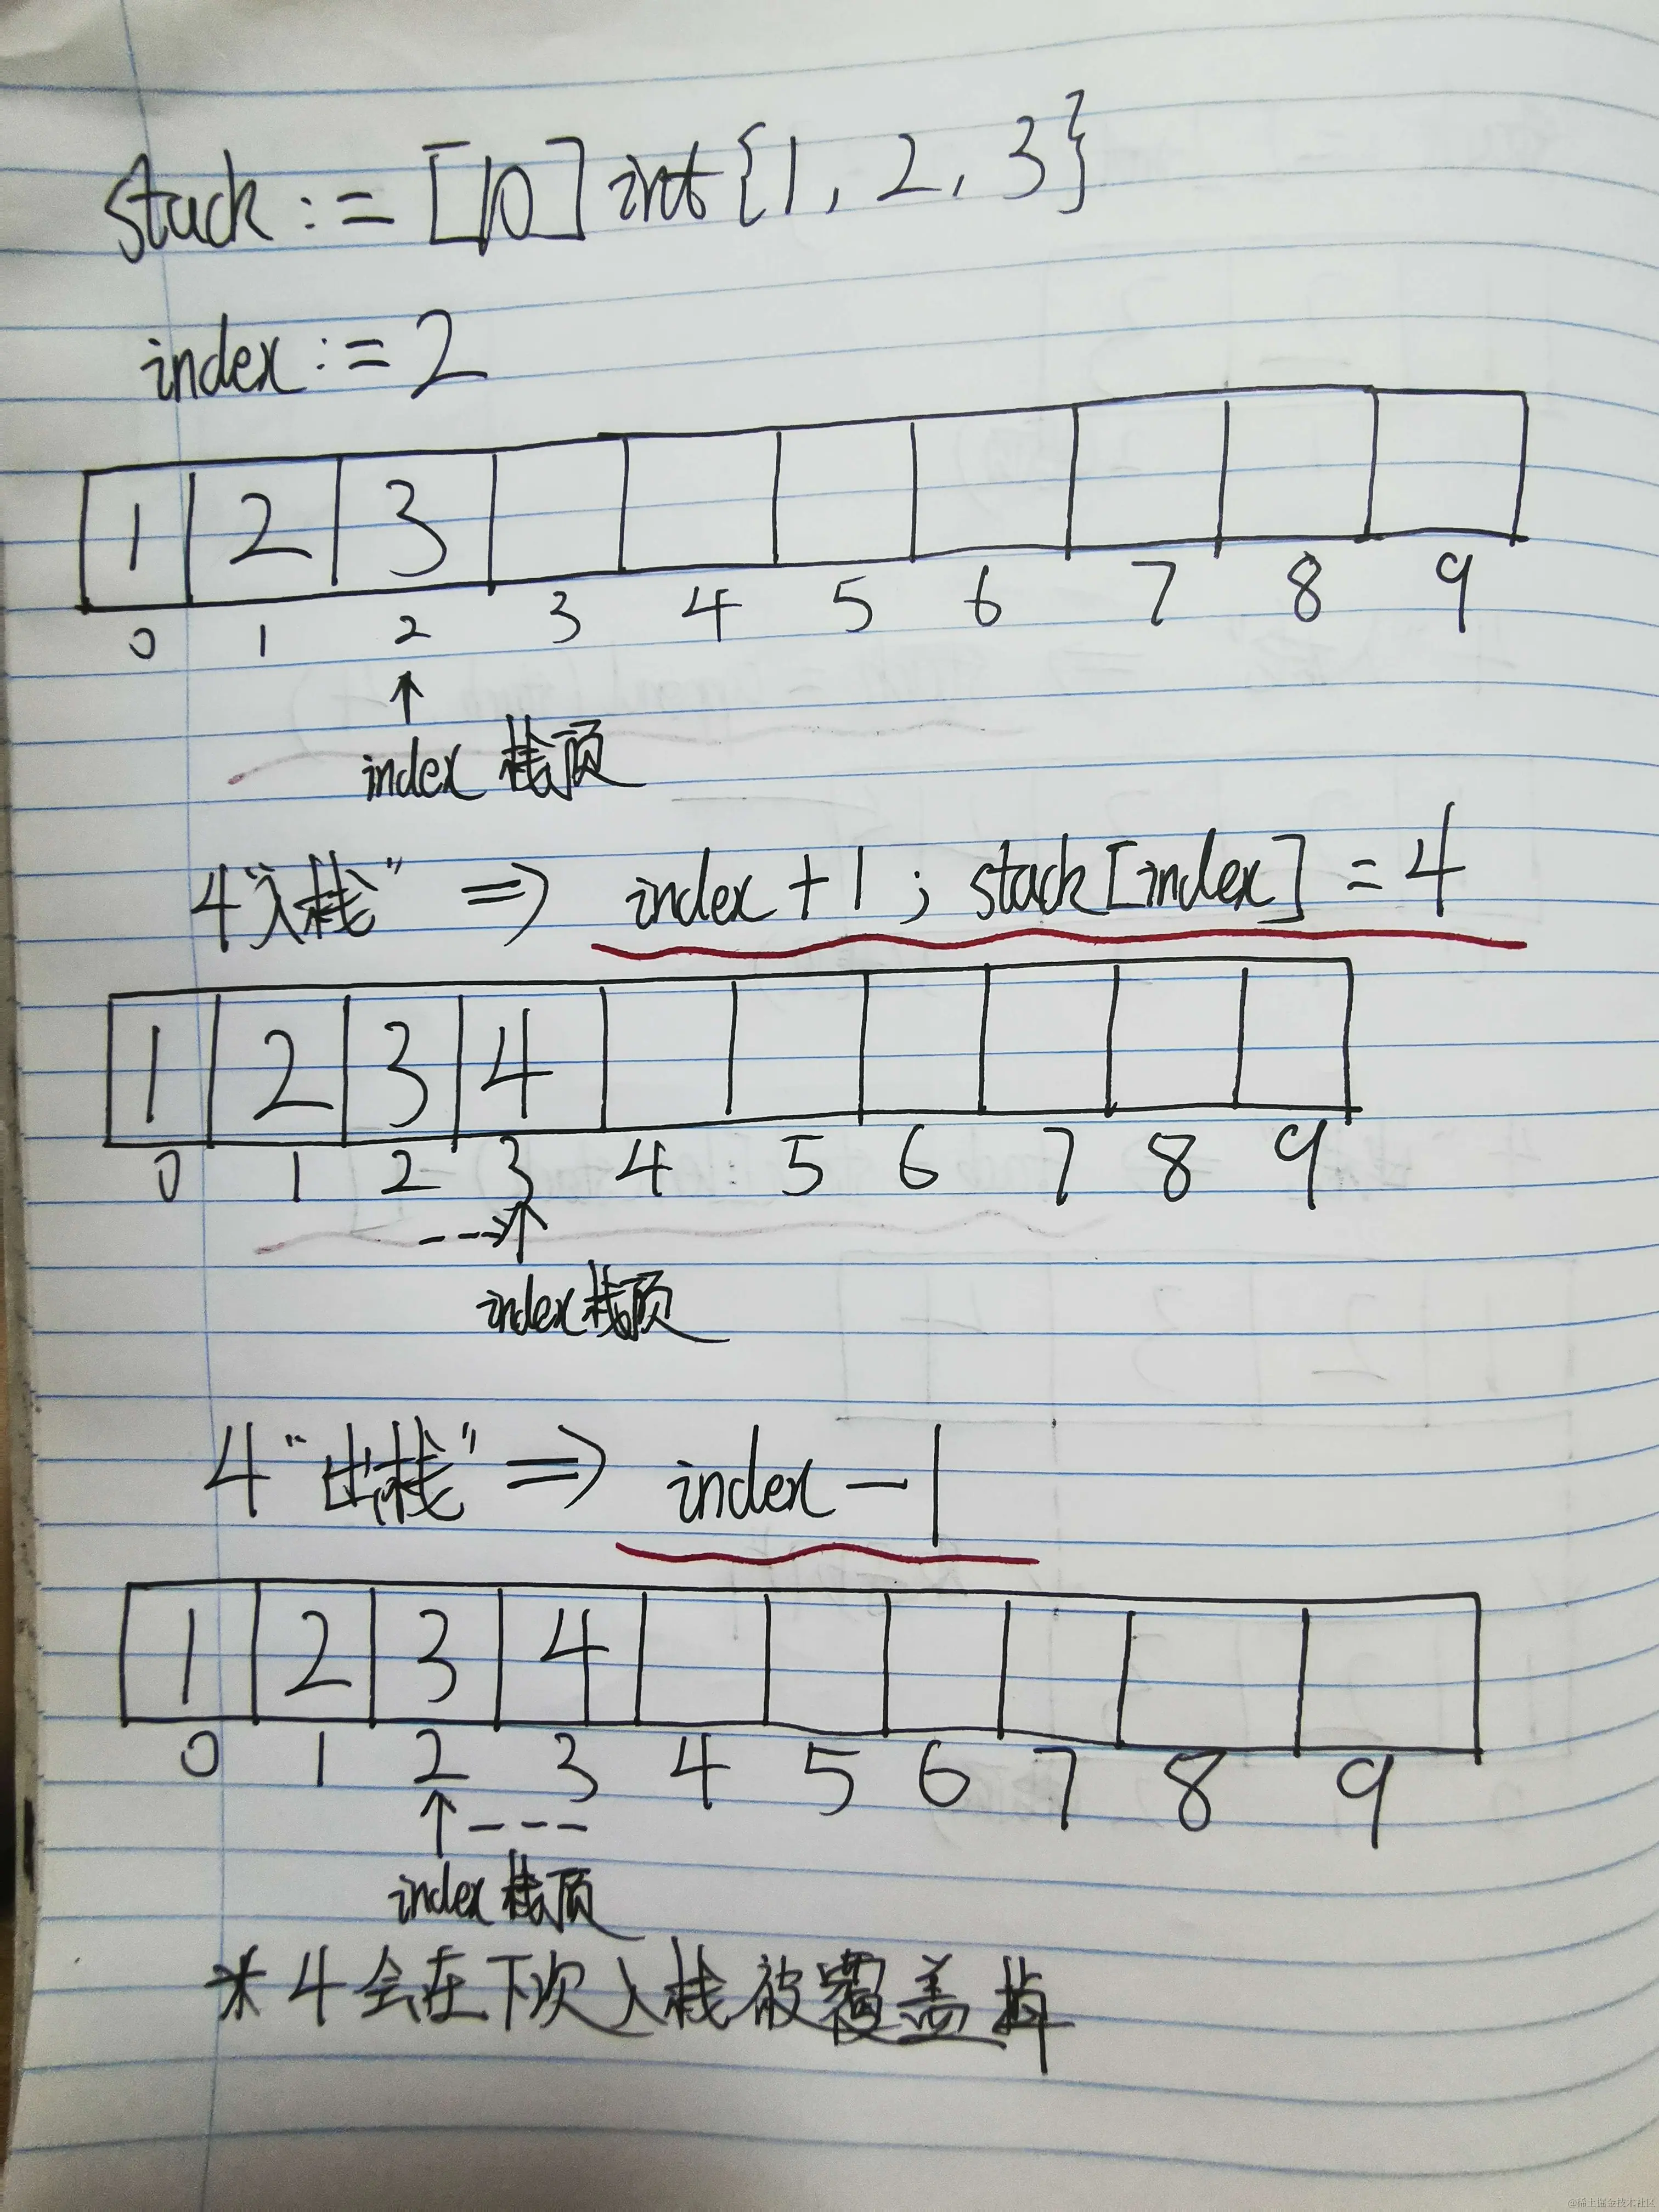 stack := [10]int{1, 2, 3}
index := 2
1 2 3
0 1 2 3 4 5 6 7 8 9
↑
index 栈顶
4“入栈” => index + 1 ; stack[index] = 4
1 2 3 4
0 1 2 3 4 5 6 7 8 9
index 栈顶
4“出栈” => index - 1
1 2 3 4
0 1 2 3 4 5 6 7 8 9
index 栈顶
* 4会在下次入栈被覆盖掉
@稀土掘金技术社区